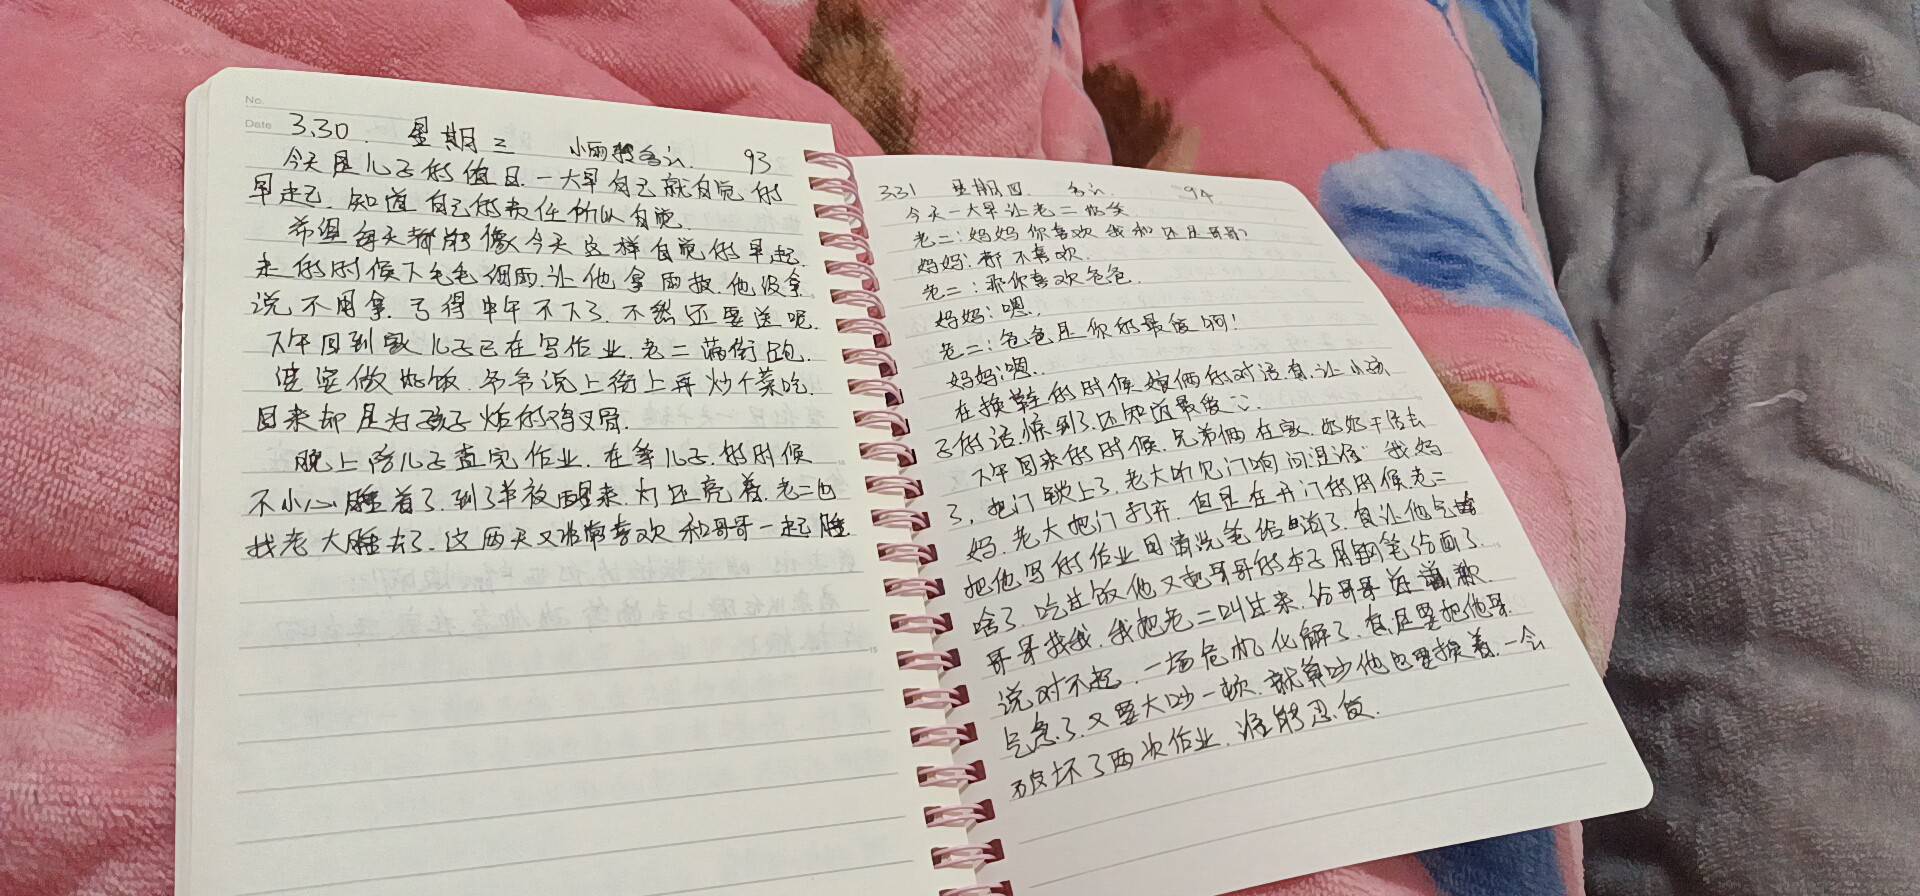 No.
Date 3.30. 星期三 小雨转多云. 93
今天是儿子的值日.一大早自己就自觉的
早起.知道自己的责任所以自觉.
希望每天都能像今天这样自觉的早起.
来的时候下毛毛细雨.让他拿雨披.他没拿
说不用拿.亏得中午不下了.不然还要送呢.
下午回到家儿子已在写作业.老二满街跑.
婆婆做好饭.爷爷说上街上再炒个菜吃.
回来却是为孩子炸的鸡叉骨.
晚上陪儿子查完作业.在等儿子的时候
不小心睡着了.到了半夜醒来.灯还亮着.老二也
找老大睡去了.这两天又非常喜欢和哥哥一起睡
3.31 星期四. 多云. 94
今天一大早让老二
老二:妈妈你喜欢我和还是哥哥?
妈妈:都不喜欢.
老二:那你喜欢爸爸.
妈妈:嗯.
老二:爸爸是你的最爱啊!
妈妈:嗯.
在换鞋的时候娘俩的对话.真让小孩
子的话惊到了.还知道最爱
下午回来的时候.兄弟俩在家.奶奶干活去
了,把门锁上了.老大听见门响问是谁我妈
妈.老大把门打开.但是在开门的时候老二
把他写的作业用清洗笔给
啥了.吃过饭他又把哥哥的本子用钢笔给画了.
哥哥找我.我把老二叫过来.给哥哥道歉.
说对不起.一场危机化解了.真是要把他哥
气急了.又要大吵一顿.就算吵他也要挨着.一会
破坏了两次作业.谁能忍受.